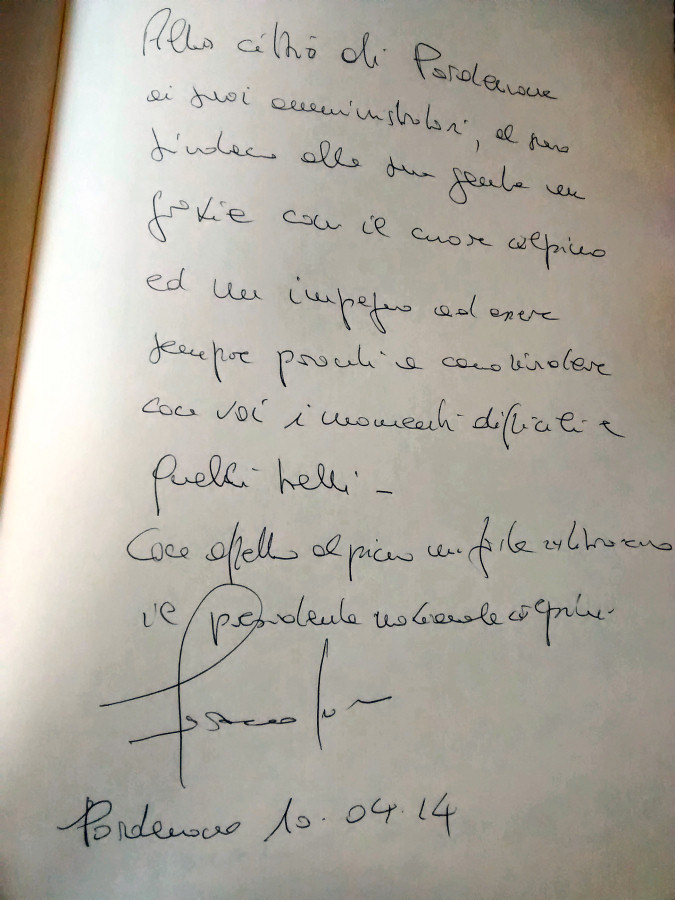 Alla città di Pordenone
ai suoi amministratori, al suo
sindaco alla sua gente un
grazie con il cuore alpino
ed un impegno ad essere
sempre pronti a condividere
con voi i momenti difficili e
quelli belli -
Con affetto alpino un
il presidente nazionale alpini
Pordenone 10.04.14